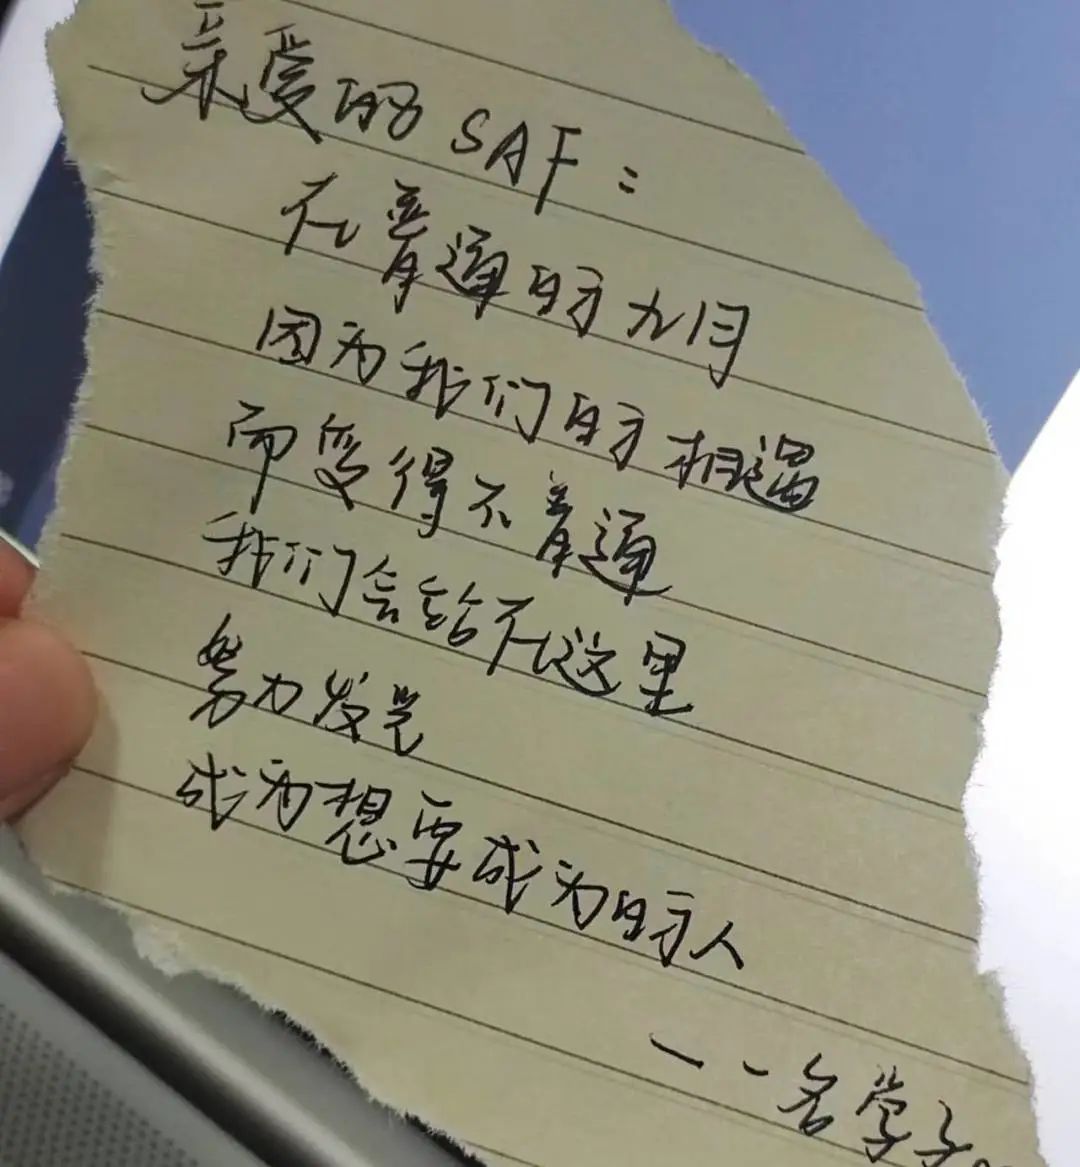 亲爱的SAF：
在普通的九月
因为我们的相遇
而变得不普通
我们会给在这里
努力发光
成为想要成为的人
——名学子